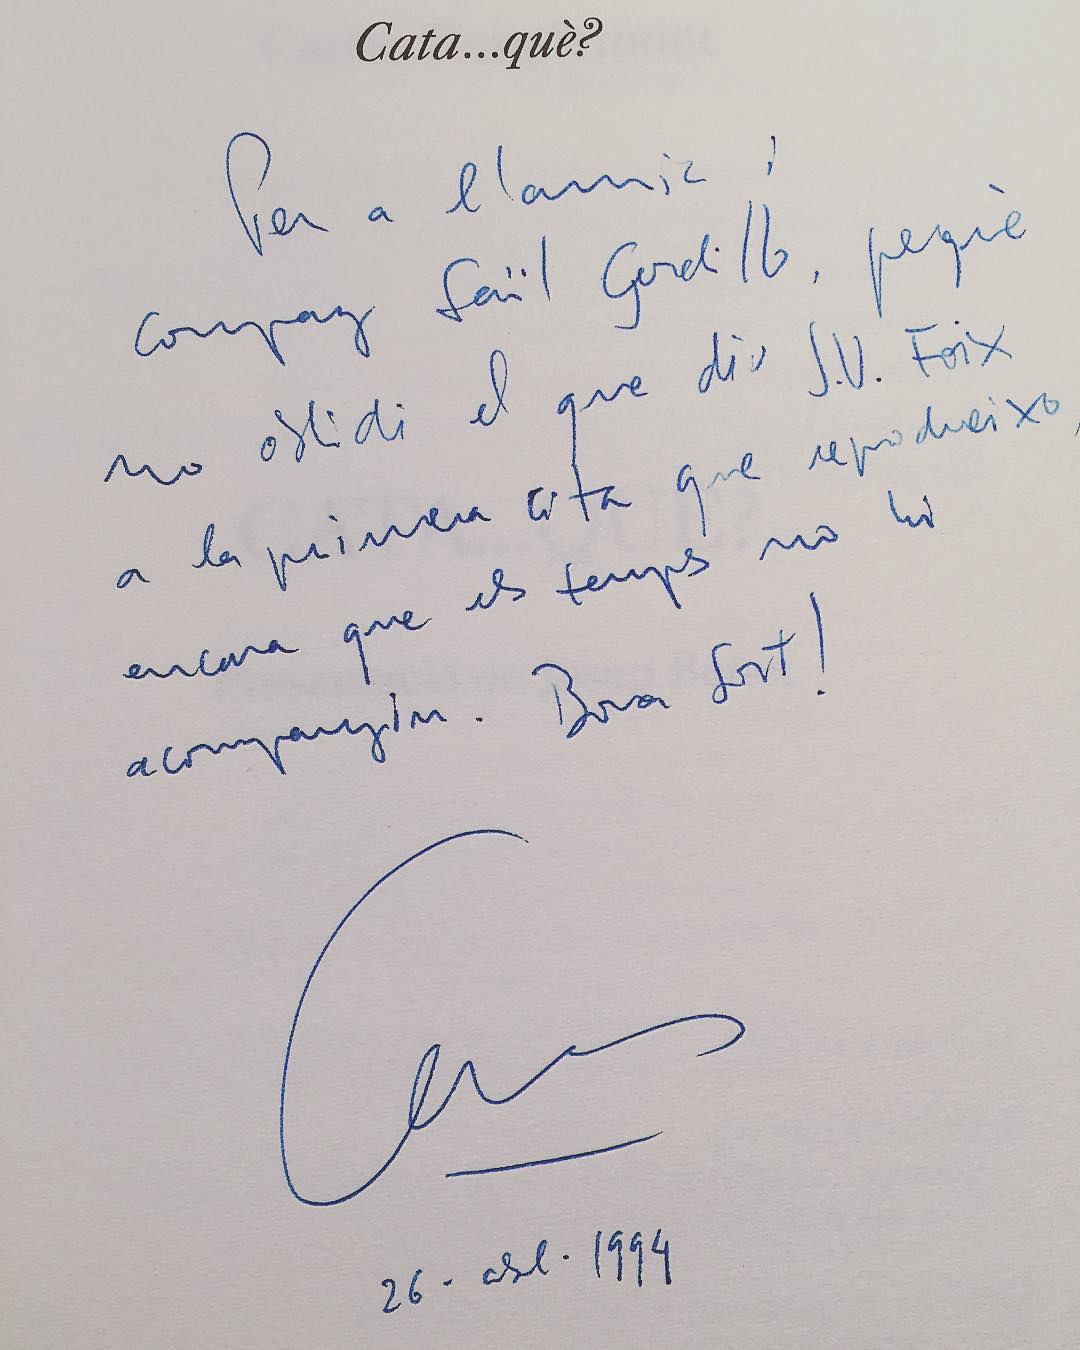 Cata...què?
Per a l'amic i
company Saül Gordillo, perquè
no oblidi el que diu J.V. Foix
a la primera cita que reprodueixo,
encara que els temps no hi
acompanyin. Bona Sort!
26 - abril - 1994